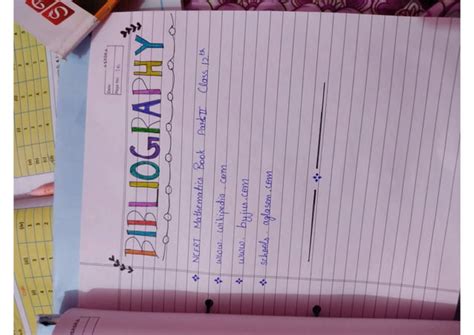 Date:
Page No:
BIBLIOGRAPHY
❖ NCERT Mathematics Book Part II Class 12th
❖ www.wikipedia.com
❖ www.byjus.com
❖ schools.aglasem.com